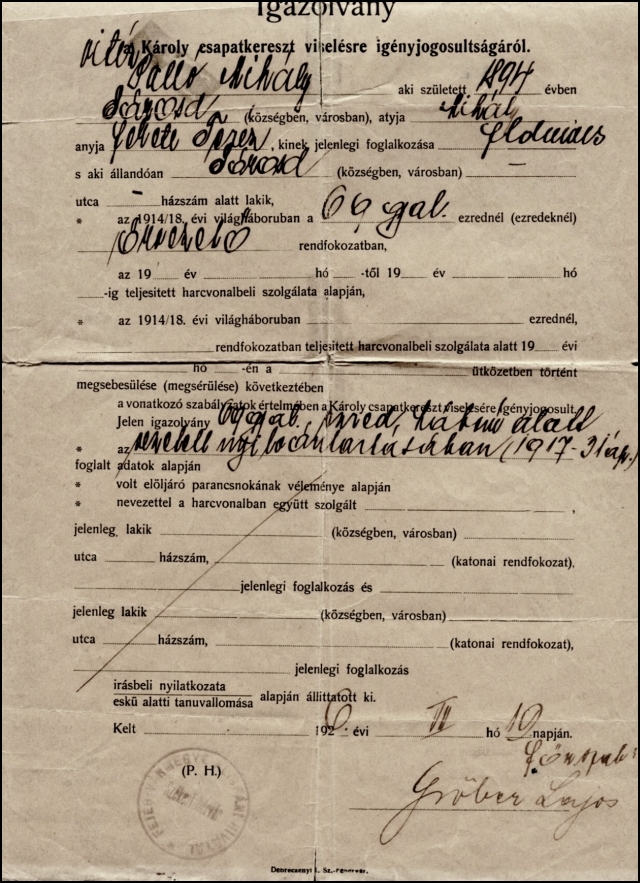 Igazolvány
a Károly csapatkereszt viselésre igényjogosultságáról.
vitéz
Palló Mihály aki született 1894 évben
Sárosd (községben, városban), atyja Mihály
anyja Fekete , kinek jelenlegi foglalkozása földmíves
s aki állandóan Sárosd (községben, városban) —
utca - házszám alatt lakik,
* az 1914/18. évi világháboruban a 69 gal. ezrednél (ezredeknél)
Őrvezető rendfokozatban,
az 19 év hó -től 19 év hó
-ig teljesitett harcvonalbeli szolgálata alapján,
* az 1914/18. évi világháboruban ezrednél,
rendfokozatban teljesitett harcvonalbeli szolgálata alatt 19 évi
hó -én a ütközetben történt
megsebesülése (megsérülése) következtében
a vonatkozó szabályzatok értelmében a Károly csapatkereszt viselésére igényjogosult
Jelen igazolvány 69 gyal. ezred,
* az nyilvántartásában (1917-31
foglalt adatok alapján
* volt elöljáró parancsnokának véleménye alapján
* nevezettel a harcvonalban együtt szolgált ,
jelenleg lakik (községben, városban)
utca házszám, (katonai rendfokozat),
jelenlegi foglalkozás és
jelenleg lakik (községben, városban)
utca házszám, (katonai rendfokozat),
jelenlegi foglalkozás
irásbeli nyilatkozata
eskü alatti tanuvallomása alapján állittatott ki.
Kelt 1926 évi hó 19 napján.
(P. H.)
Gröber Lajos
Debreczenyi I. Sz.-Fehérvár.